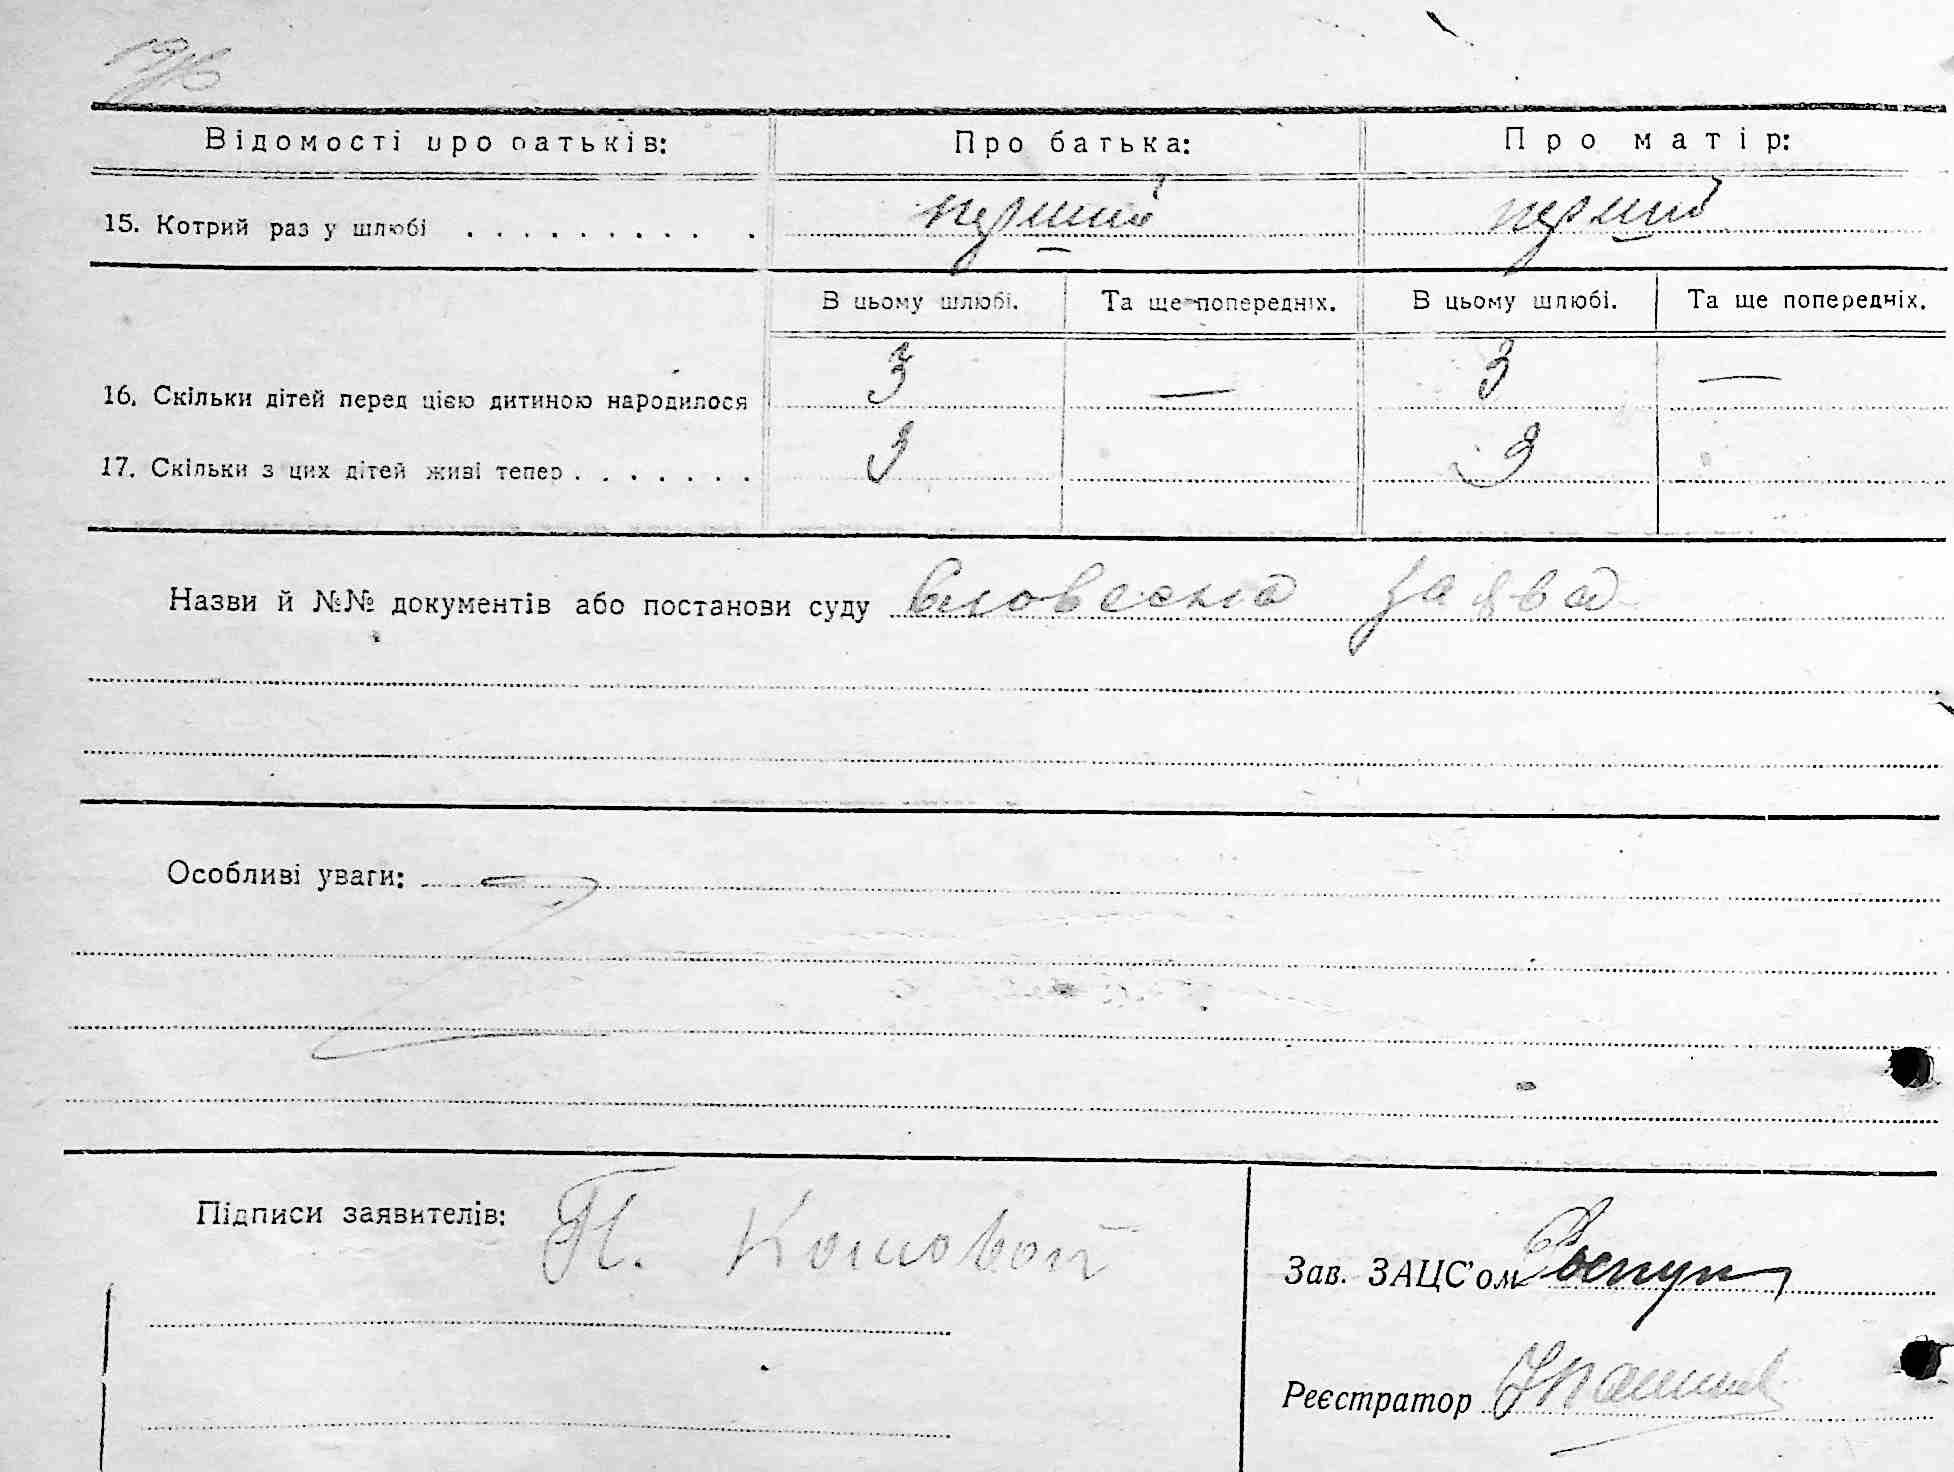 Відомості про батьків: Про батька: Про матір:
15. Котрий раз у шлюбі . . . . . . . . . . перший перший
В цьому шлюбі. Та ще попередніх. В цьому шлюбі. Та ще попередніх.
16. Скільки дітей перед цією дитиною народилося 3 — 3 —
17. Скільки з цих дітей живі тепер . . . . . . . 3 3
Назви й №№ документів або постанови суду словесна заява
Особливі уваги:
Підписи заявителів: П. Кошовой
Зав. ЗАЦС'ом
Реєстратор